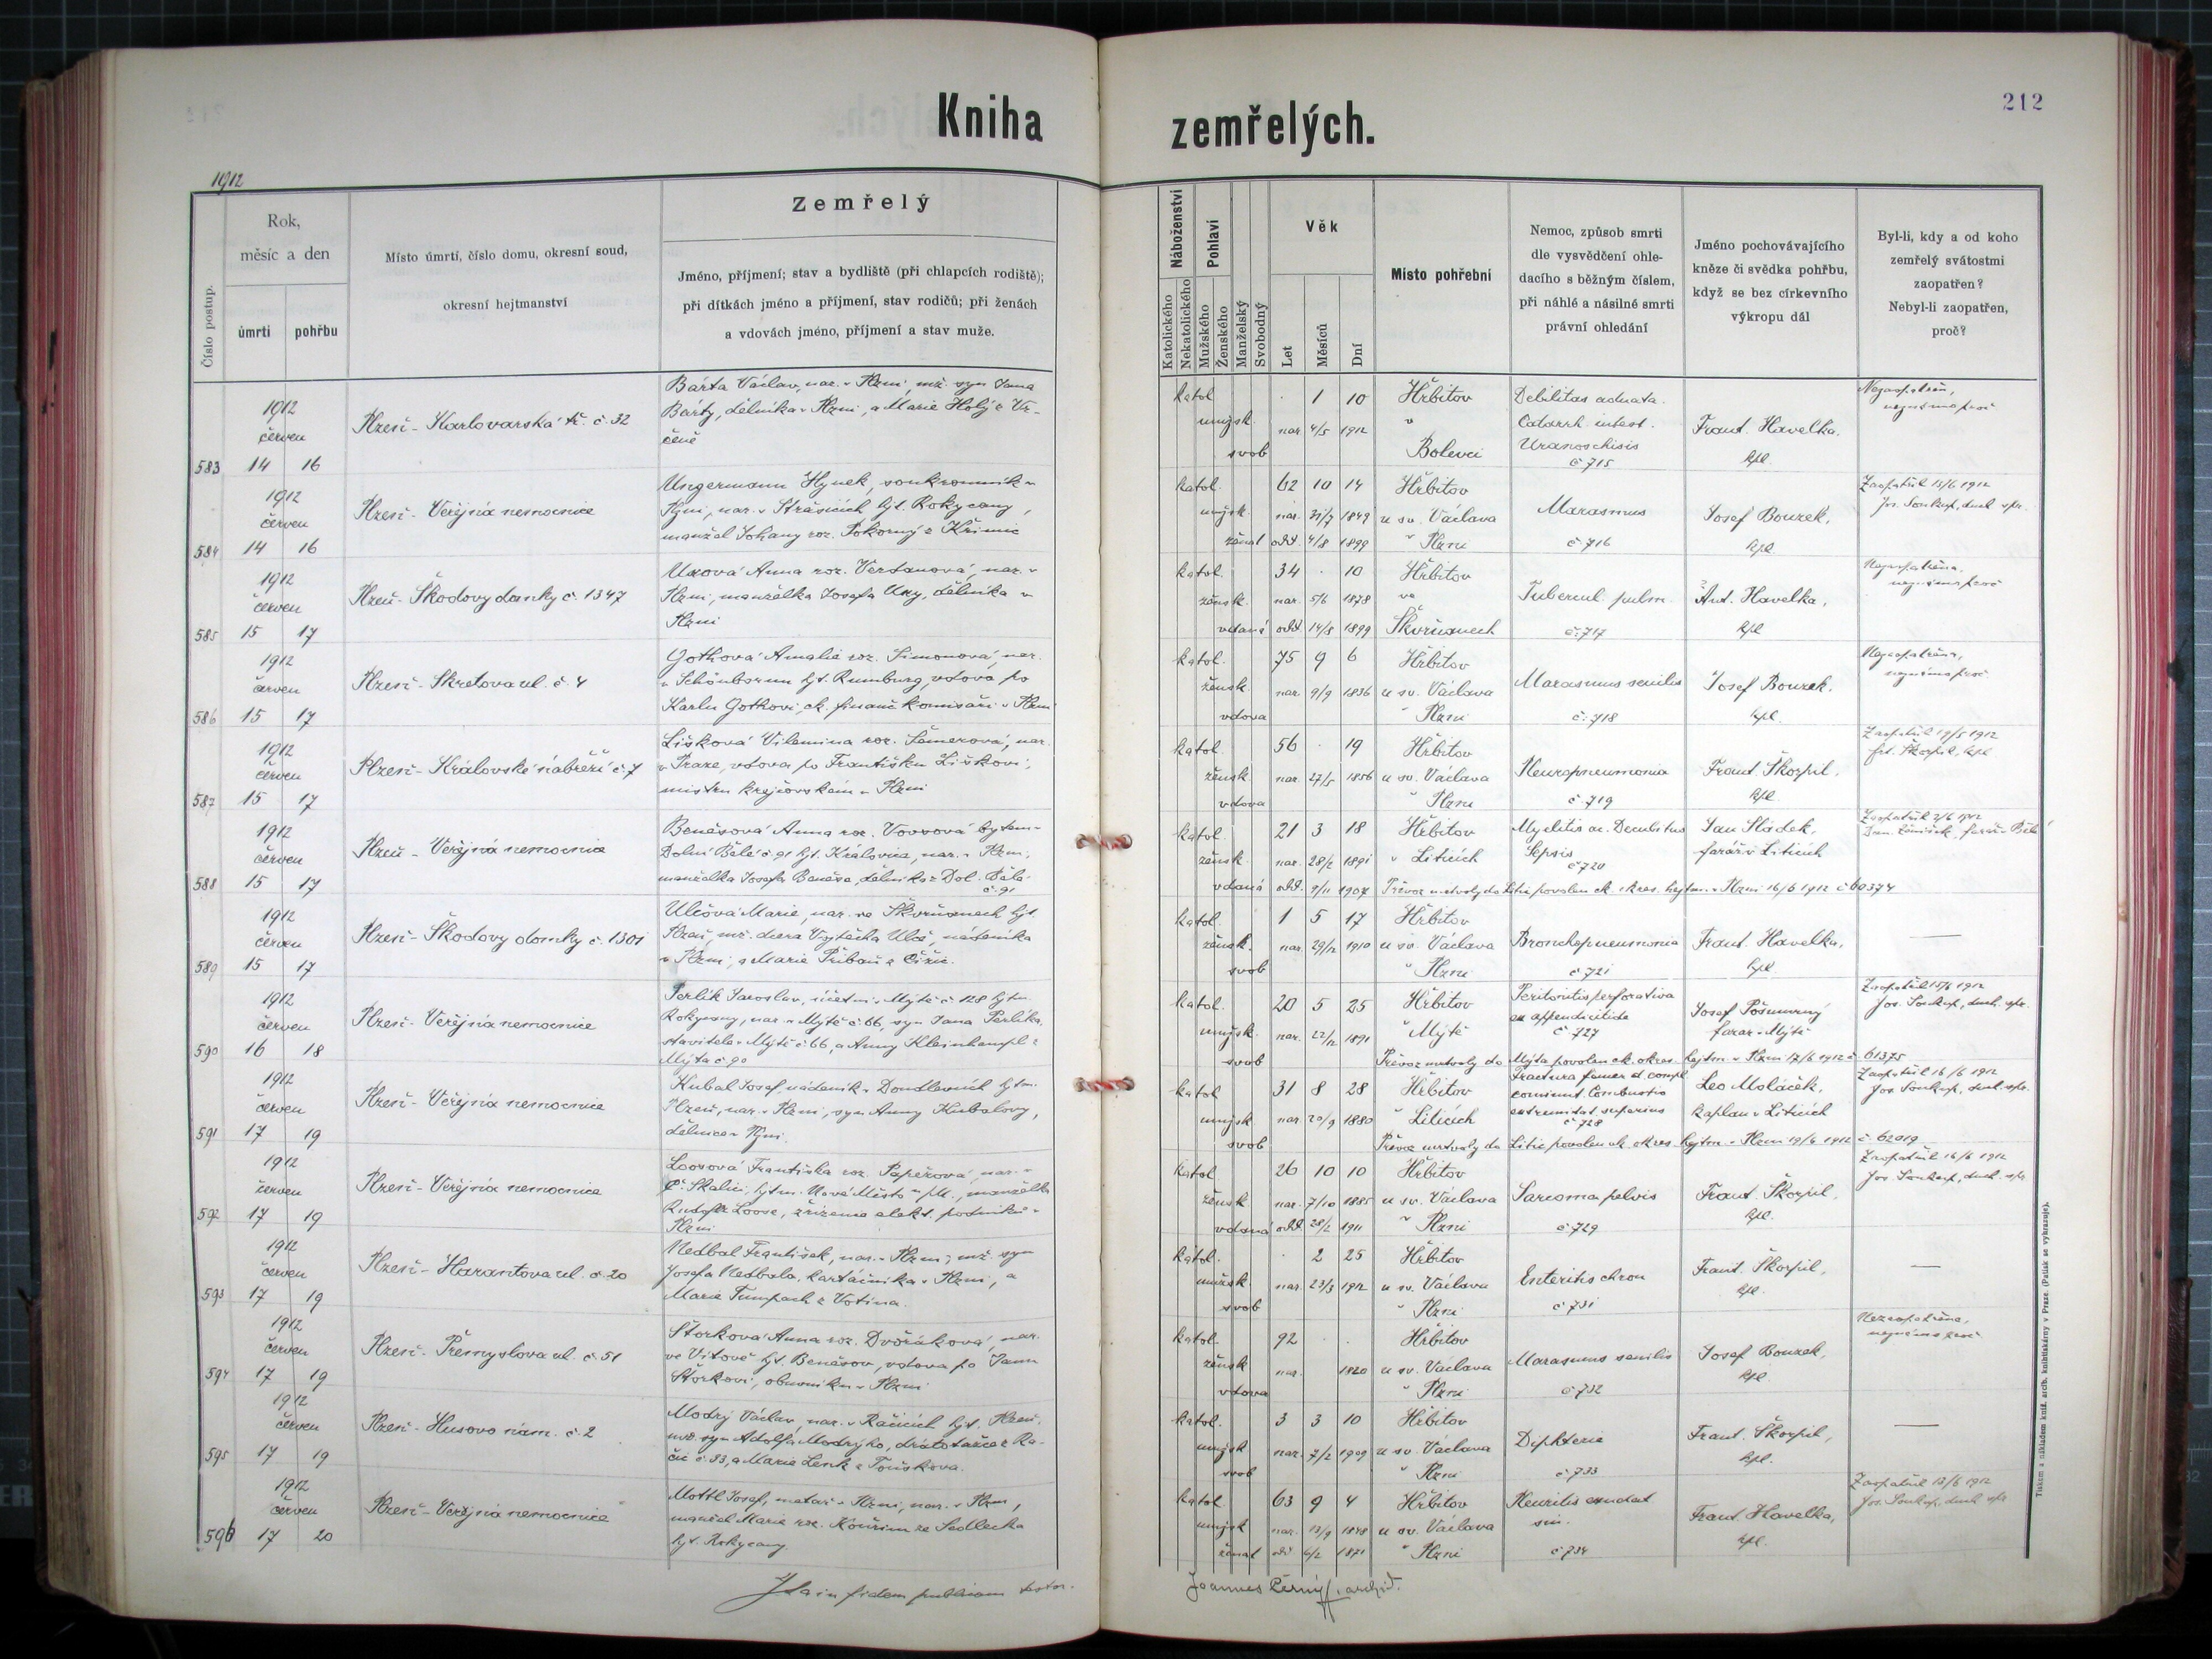 212
Kniha zemřelých.
1912
Číslo postup.
Rok,
měsíc a den
úmrtí
pohřbu
Místo úmrtí, číslo domu, okresní soud,
okresní hejtmanství
Zemřelý
Jméno, příjmení; stav a bydliště (při chlapcích rodiště);
při dítkách jméno a příjmení, stav rodičů; při ženách
a vdovách jméno, příjmení a stav muže.
Náboženství
Katolického
Nekatolického
Pohlaví
Mužského
Ženského
Manželský
Svobodný
Věk
Let
Měsíců
Dní
Místo pohřební
Nemoc, způsob smrti
dle vysvědčení ohle-
dacího s běžným číslem,
při náhlé a násilné smrti
právní ohledání
Jméno pochovávajícího
kněze či svědka pohřbu,
když se bez církevního
výkropu dál
Byl-li, kdy a od koho
zemřelý svátostmi
zaopatřen?
Nebyl-li zaopatřen,
proč?
583
1912
červen
14 16
Plzeň - Karlovarská tř. č. 32
Bárta Václav, nar. v Plzni, mž. syn Jana
Bárty, dělníka v Plzni, a Marie Holý z
katol
mužsk.
svob
1 10
nar. 4/5 1912
Hřbitov
v
Bolevci
Debilitas adnata.
Catarrh. intest.
Uranoschisis
č 715
Frant. Havelka,
kpl.
Nezaopatřen,
584
1912
červen
14 16
Plzeň - Veřejná nemocnice
Ungermann Hynek, soukromník v
Plzni, nar. v Strašicích hjt. Rokycany,
manžel Johany roz. Pokorný z Křimic
katol.
mužsk.
ženat
62 10 14
nar. 31/7 1849
odd. 4/8 1899
Hřbitov
u sv. Václava
v Plzni
Marasmus
č 716
Josef Bouzek,
kpl.
Zaopatřil 13/6 1912
Jos. Soukup, duch. spr.
585
1912
červen
15 17
Plzeň - Škodovy domky č. 1347
Uxová Anna roz. Vertanová, nar. v
Plzni, manželka Josefa Uxy, dělníka v
Plzni
katol.
žensk.
vdaná
34 . 10
nar. 5/6 1878
odd. 14/8 1899
Hřbitov
ve
Škvrňanech
Tubercul. pulm.
č. 717
Ant. Havelka,
kpl
Nezaopatřena,
586
1912
červen
15 17
Plzeň - Skretova ul. č. 4
Gothová Amalie roz. Simonová, nar.
v Schönbornu hjt. Rumburg, vdova po
Karlu Gothovi, ck. finanč komisaři v Plzni
katol.
žensk.
vdova
75 9 6
nar. 9/9 1836
Hřbitov
u sv. Václava
v Plzni
Marasmus senilis
č. 718
Josef Bouzek,
kpl.
Nezaopatřena,
587
1912
červen
15 17
Plzeň - Královské nábřeží č. 7
Lišková Vilemina roz. Šemerová, nar.
v Praze, vdova po Františku Liškovi,
mistru krejčovském v Plzni
katol.
žensk
vdova
56 . 19
nar. 27/5 1856
Hřbitov
u sv. Václava
v Plzni
Pleuropneumonia
č 719
Frant. Škorpil,
kpl.
Zaopatřil 19/5 1912
Frt. Škorpil, kpl
588
1912
červen
15 17
Plzeň - Veřejná nemocnice
Benešová Anna roz. Vovsová bytem v
Dolní Bělé č. 91 hjt. Kralovice, nar. v Plzni,
manželka Josefa Beneše, dělníka z Dol. Bělé
č. 91
katol.
žensk.
vdaná
21 3 18
nar. 28/2 1891
odd. 9/11 1907
Hřbitov
v Liticích
Myelitis ac. Decubitus
Sepsis
č 720
Jan Sládek,
farář v Liticích
Zaopatřil 2/6 1912
Převoz mrtvoly do Litic povolen ck. okres. hejtm. v Plzni 16/6 1912 č 60374
589
1912
červen
15 17
Plzeň - Škodovy domky č. 1301
Ulčová Marie, nar. ve Škvrňanech hjt.
Plzeň, mž. dcera Vojtěcha Ulče, nádeníka
v Plzni, a Marie Přibaň z Čižic.
katol.
žensk.
svob
1 5 17
nar. 29/12 1910
Hřbitov
u sv. Václava
v Plzni
Bronchopneumonia
č 721
Frant. Havelka,
kpl
590
1912
červen
16 18
Plzeň - Veřejná nemocnice
Perlík Jaroslav, účetní v Mýtě č 128 hjtm.
Rokycany, nar. v Mýtě č 66, syn Jana Perlíka,
stavitele v Mýtě č 66, a Anny Kleinhampl z
Mýta č 90
katol.
mužsk.
svob
20 5 25
nar. 22/12 1891
Hřbitov
v Mýtě
Peritonitis perforativa
ex appendicitide
č 727
Josef Pošmurný
farář v Mýtě
Zaopatřil 15/6 1912
Jos. Soukup, duch. spr.
Převoz mrtvoly do Mýta povolen ck. okres. hejtm. v Plzni 17/6 1912 č 61375
591
1912
červen
17 19
Plzeň - Veřejná nemocnice
Kubal Josef, nádeník v Doudlevcích hjtm.
Plzeň, nar. v Plzni, syn Anny Kubalovy,
dělnice v Plzni.
katol
mužsk
svob
31 8 28
nar. 20/9 1880
Hřbitov
v Liticích
Fractura femor d. compl.
comminut. Combustio
extremitat. superius
č 728
Leo Moláček,
kaplan v Liticích
Zaopatřil 16/6 1912
Jos. Soukup, duch. spr.
Převoz mrtvoly do Litic povolen ck. okres. hejtm. v Plzni 19/6 1912 č. 62019
592
1912
červen
17 19
Plzeň - Veřejná nemocnice
Loosová Františka roz. Papežová, nar. v
Č. Skalici, hjtm. Nové Město n/M., manželka
Rudolfa Loose, zřízence elekt. podniků v
Plzni
katol
žensk
vdaná
26 10 10
nar. 7/10 1885
odd. 28/2 1911
Hřbitov
u sv. Václava
v Plzni
Sarcoma pelvis
č 729
Frant. Škorpil,
kpl.
Zaopatřil 16/6 1912
Jos. Soukup, duch. spr.
593
1912
červen
17 19
Plzeň - Harantova ul. č. 20
Nedbal František, nar. v Plzni, mž. syn
Josefa Nedbala, kartáčníka v Plzni, a
Marie Tumpach z Votína.
katol.
mužsk.
svob
. 2 25
nar. 23/3 1912
Hřbitov
u sv. Václava
v Plzni
Enteritis chron
č 731
Frant. Škorpil,
kpl.
594
1912
červen
17 19
Plzeň - Přemyslova ul. č. 51
Štorková Anna roz. Dvořáková, nar.
ve Vitově hjt. Benešov, vdova po Janu
Štorkovi, obuvníku v Plzni
katol.
žensk
vdova
92 . .
nar. 1820
Hřbitov
u sv. Václava
v Plzni
Marasmus senilis
č 732
Josef Bouzek,
kpl.
Nezaopatřena,
595
1912
červen
17 19
Plzeň - Husovo nám. č. 2
Modrý Václav, nar. v Račicích hjt. Plzeň,
mž. syn Adolfa Modrýho, dratotažce z Ra-
čic č. 33, a Marie Lenk z Touškova.
katol.
mužsk
svob
3 3 10
nar. 7/2 1909
Hřbitov
u sv. Václava
v Plzni
Diphterie
č 733
Frant. Škorpil,
kpl.
596
1912
červen
17 20
Plzeň - Veřejná nemocnice
Mottl Josef, metař v Plzni, nar. v Plzni,
manžel Marie roz. Kouřim ze Sedlecka
hjt. Rokycany.
katol
mužsk
ženat
63 9 4
nar. 13/9 1848
odd 6/2 1871
Hřbitov
u sv. Václava
v Plzni
Pleuritis exudat
sin.
č 734
Frant. Havelka,
kpl.
Zaopatřil 13/6 1912
Jos. Soukup, duch spr
Ita in fidem publicam testor.
Joannes Černý, archid.
Tiskem a nákladem kníž. arcib. knihtiskárny v Praze. (Patisk se vyhrazuje).